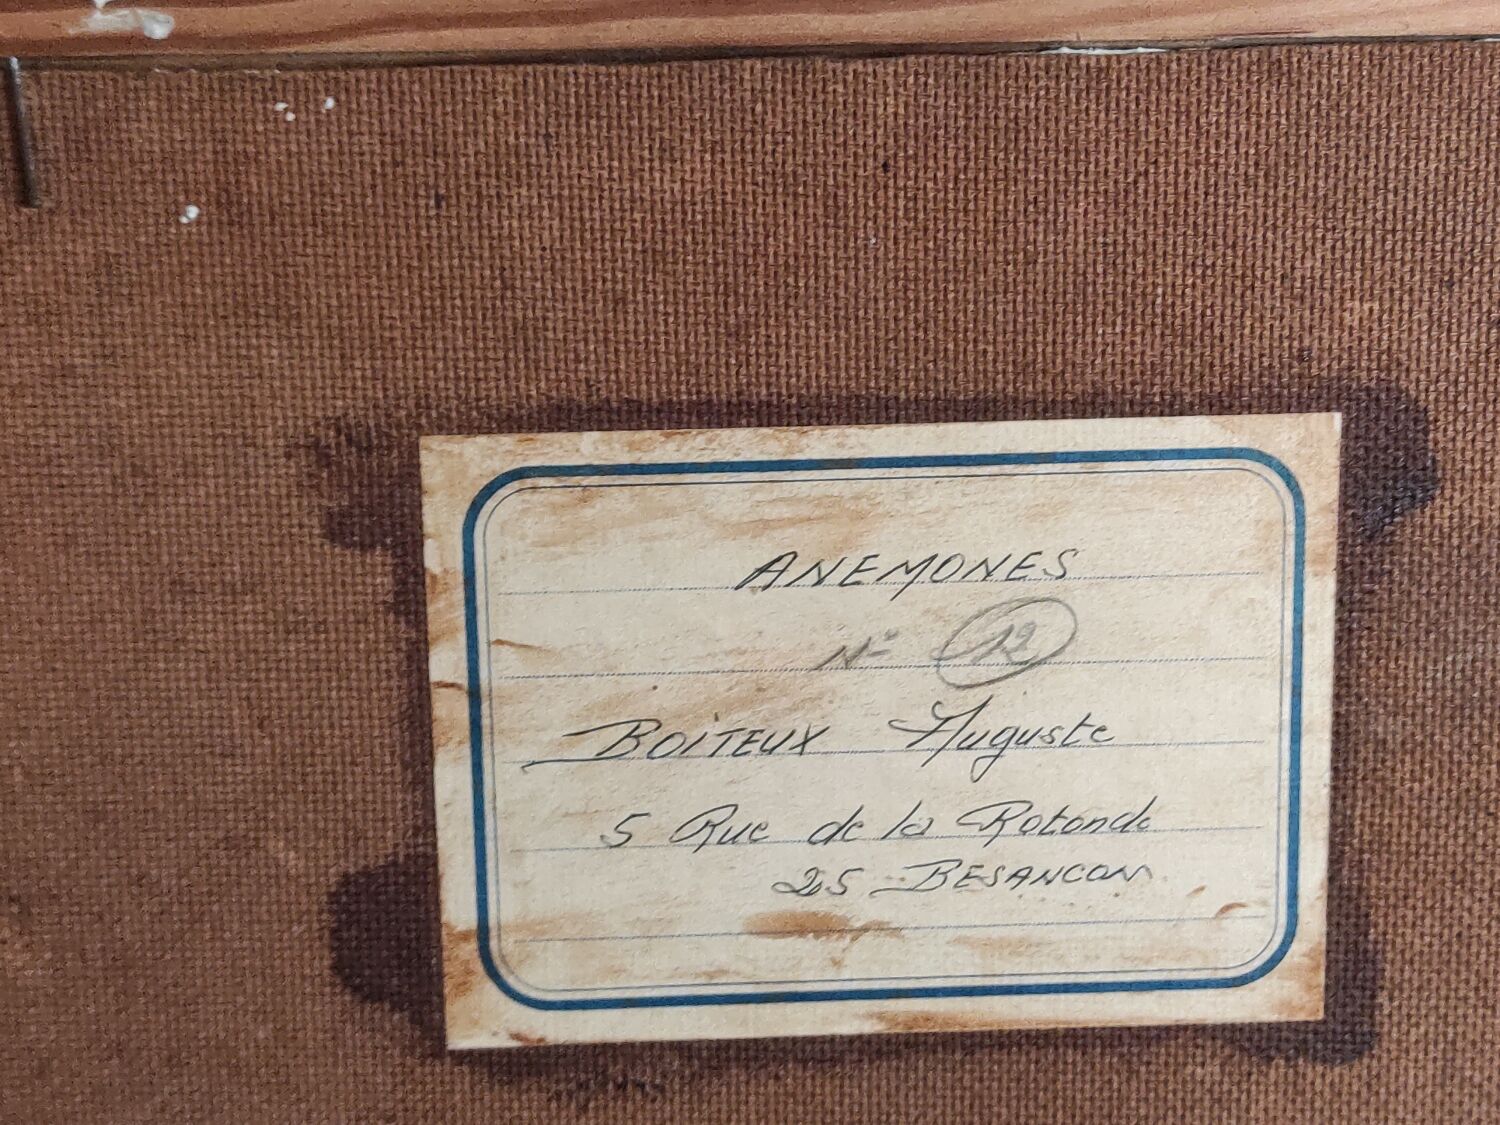 ANEMONES
N° 12
BOITEUX Auguste
5 Rue de la Rotonde
25 BESANCON